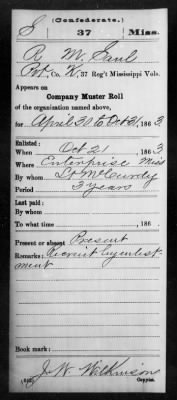 (Confederate.)
S 37 Miss.
R. M. Saul
Pvt, Co. K, 37 Reg't Mississippi Vols.
Appears on
Company Muster Roll
of the organization named above,
for April 30 to Oct 31, 186 3
Enlisted:
When Oct 21, 186 3
Where Enterprise Miss
By whom Lt McCurdy
Period 3 years
Last paid:
By whom
To what time , 186 .
Present or absent Present
Remarks: Recruit by enlist-
ment
Book mark:
J. W. Wilkinson
Copyist.